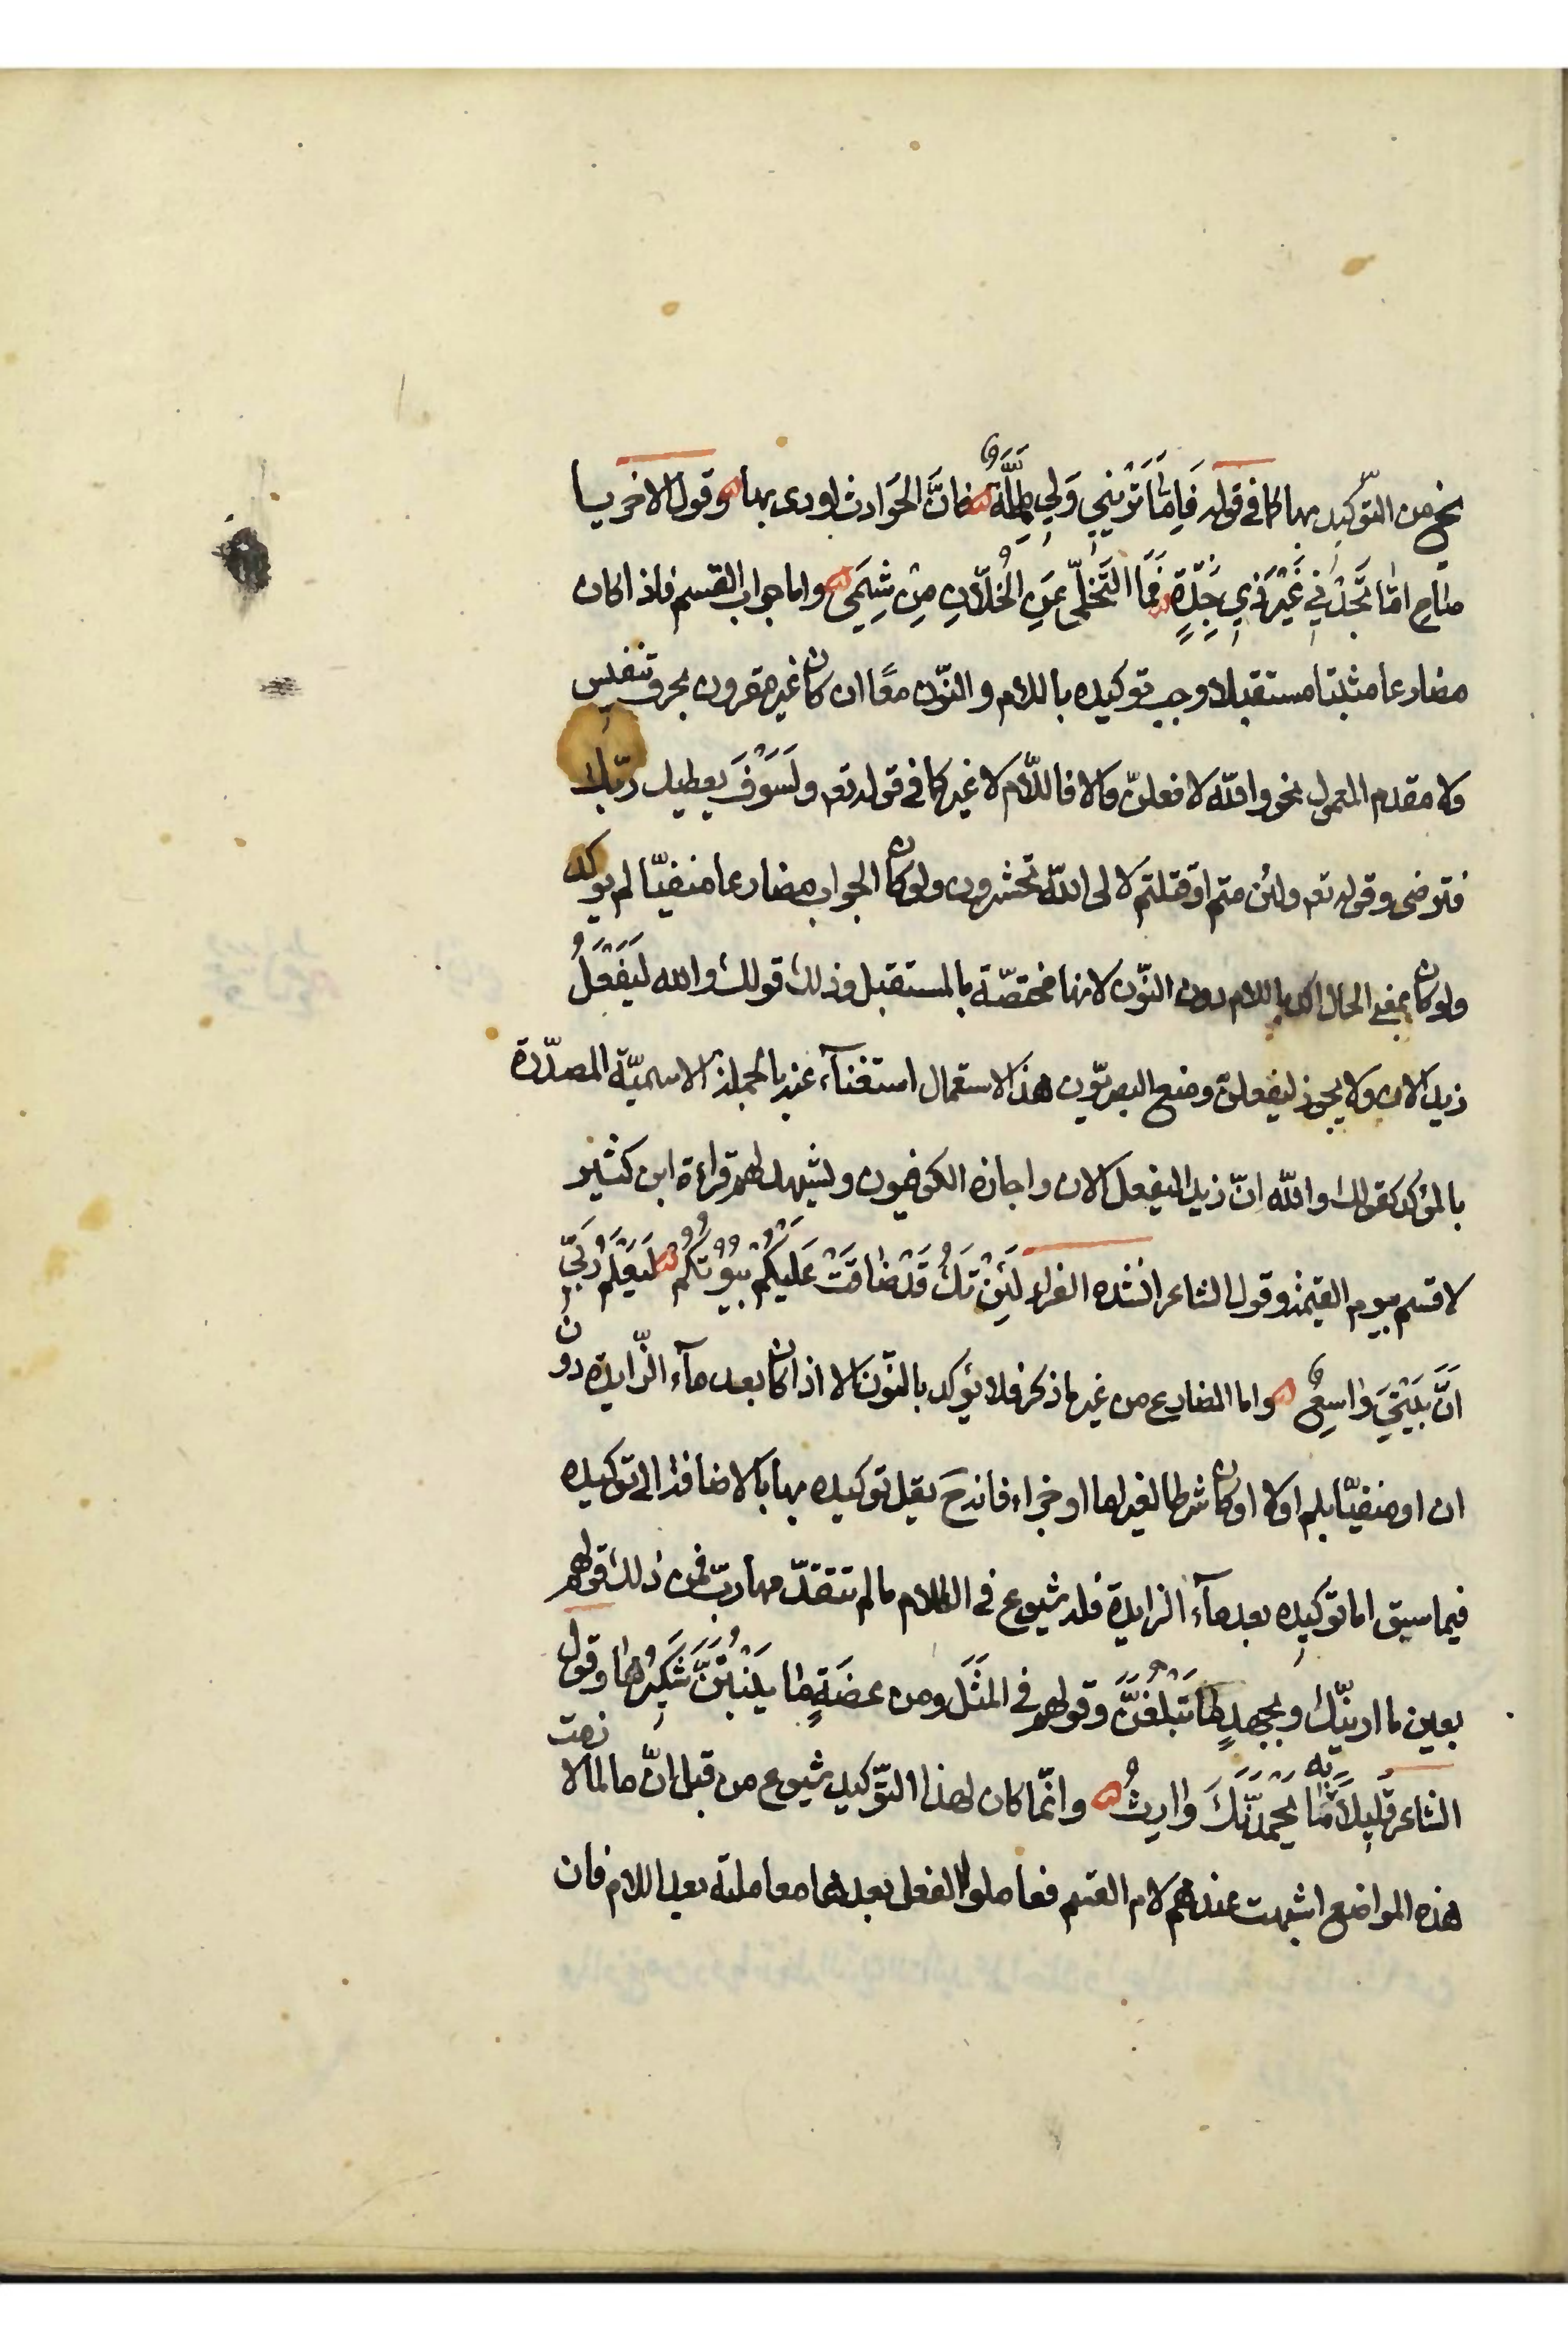 نخ من التوكيد بها كما في قوله فَاِمّٰا تَرَيْنِي وَلِي لِمَّةٌ فَاِنَّ الحَوادِث اودى بها وقول الاخر يا
صٰاحِ امّٰا تَجِدْنِي غَيْرَ ذِي جِدَةٍ فَمَا التَّخَلّى عَنِ الْخُلّانِ مِنْ شِيَمي واما جواب القسم فاذا كان
مضارعا مثبتا مستقبلا وجب توكيده باللام والنّون معًا ان كان غير مقرون بحرف تنفيس
ولا مقدم المعمول نحو واللّه لافعلنّ والا فاللّام لا غير كما في قوله تع ولَسَوْفَ يعطيك ربّك
فترضى وقوله تع ولئن متم او قتلتم لالى اللّه تحشرون ولو كان الجواب مضارعا منفيّا لم يوكد
ولو كان بمعنى الحال اكد باللام دون النّون لانها مختصّة بالمستقبل وذلك قولك والله لَيَفْعَلُ
زيد الان ولا يجوز ليفعلنّ ومنع البصريّون هذا الاستعمال استغنآء عنه بالجملة الاسميّة المصدّرة
بالمؤكد كقولك واللّه انّ زيدا ليفعل الان واجازه الكوفيون ويشهد لهم قراءة ابن كثير
لاقسم بيوم القيمة وقول الشاعر انشده الفراء لَئِنْ تَكُ قَدْ ضٰاقَتْ عَلَيْكُمْ بُيُوْتُكُمْ لَيَعْلَمُ رَبّي
اَنَّ بَيْتِيَ وٰاسِعُ واما المضارع من غير ما ذكر فلا يؤكد بالنّون الا اذا كان بعد مآء الزّايدة دون
ان او منفيّا بلم او لا او كان شرطا لغير اما او جزاء فانه ح يقل توكيده بها بالاضافة الى توكيده
فيما سبق اما توكيده بعد مآء الزايدة فله شيوع في الكلام ما لم تتقدّمها ربّ فمن ذلك قولهم
بعين ما ارينّك وبجهدٍ مٰا تَبْلُغَنَّ وقولهم في المَثَل ومن عضَةٍ مٰا يَنْبُتَنَّ شَكِيرُهٰا وقول
الشاعر قَلِيلاً بِه مٰا يَحْمَدَنَّكَ وٰارِثُ وانّما كان لهذا التّوكيد شيوع من قبل انّ ما لما لازمت
هذه المواضع اشبهت عندهم لام القسم فعاملوا الفعل بعدها معاملته بعد اللام فان